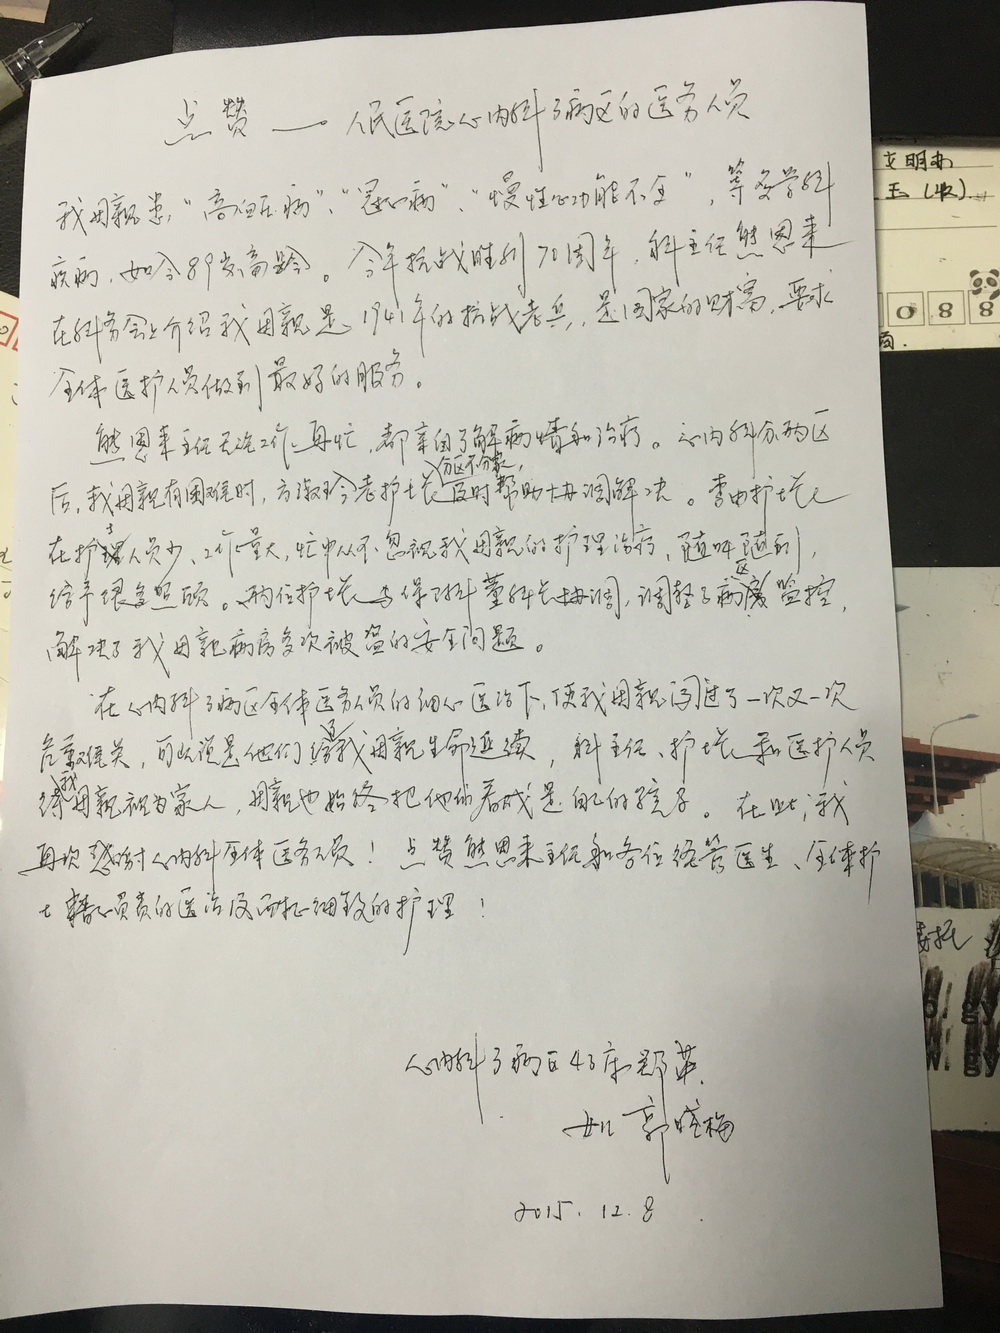 点赞——人民医院心内科3病区的医务人员
我母亲患“高血压病”、“冠心病”、“慢性心功能不全”,等多学科
疾病,如今89岁高龄。今年抗战胜利70周年,科主任熊恩来
在科务会上介绍我母亲是1941年的抗战老兵,是国家的财富,要求
全体医护人员做到最好的服务。
熊恩来主任无论工作再忙,都亲自了解病情和治疗。心内科分两区
后,我母亲有困难时,方淑玲老护士长分区不分家,及时帮助协调解决。李由护士长
在护士人员少、工作量大,忙中从不忽视我母亲的护理治疗,随叫随到,
给予很多照顾。两位护士长与保卫科董科长协调,调整了病区监控,
解决了我母亲病房多次被盗的安全问题。
在心内科3病区全体医务人员的细心医治下,使我母亲闯过了一次又一次
危重难关,可以说是他们给我母亲生命延续,科主任、护士长和医护人员
待我母亲视为家人,母亲也始终把他们看成是自己的孩子。在此,我
再次感谢心内科全体医务人员!点赞熊恩来主任和各位经管医生、全体护
士精心负责的医治及而細致的护理!
心内科3病区43床 郑英
女儿 郭晓梅
2015.12.8
文明办
玉(收).
0 8 8
委托